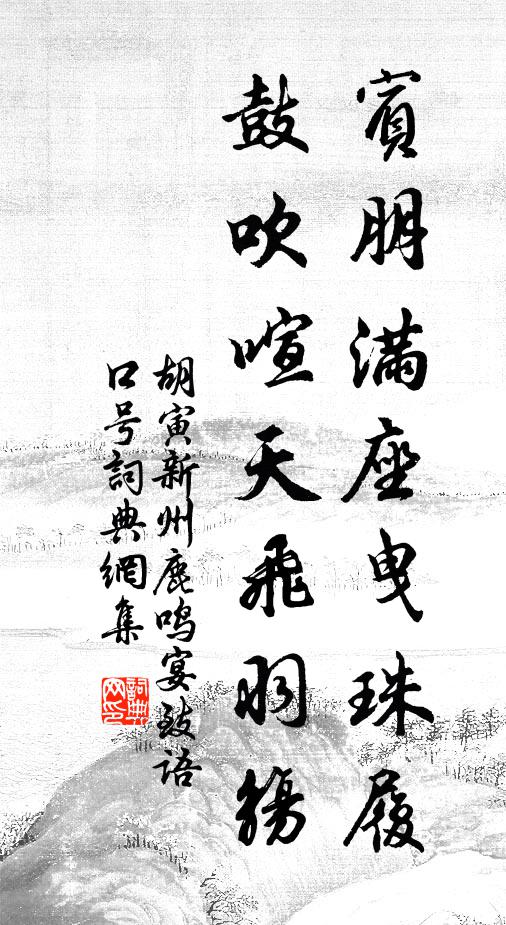 賓朋滿座曳珠履
鼓吹喧天飛羽觴
胡寅新州鹿鳴宴致語
口号詞典網集
詞典網印